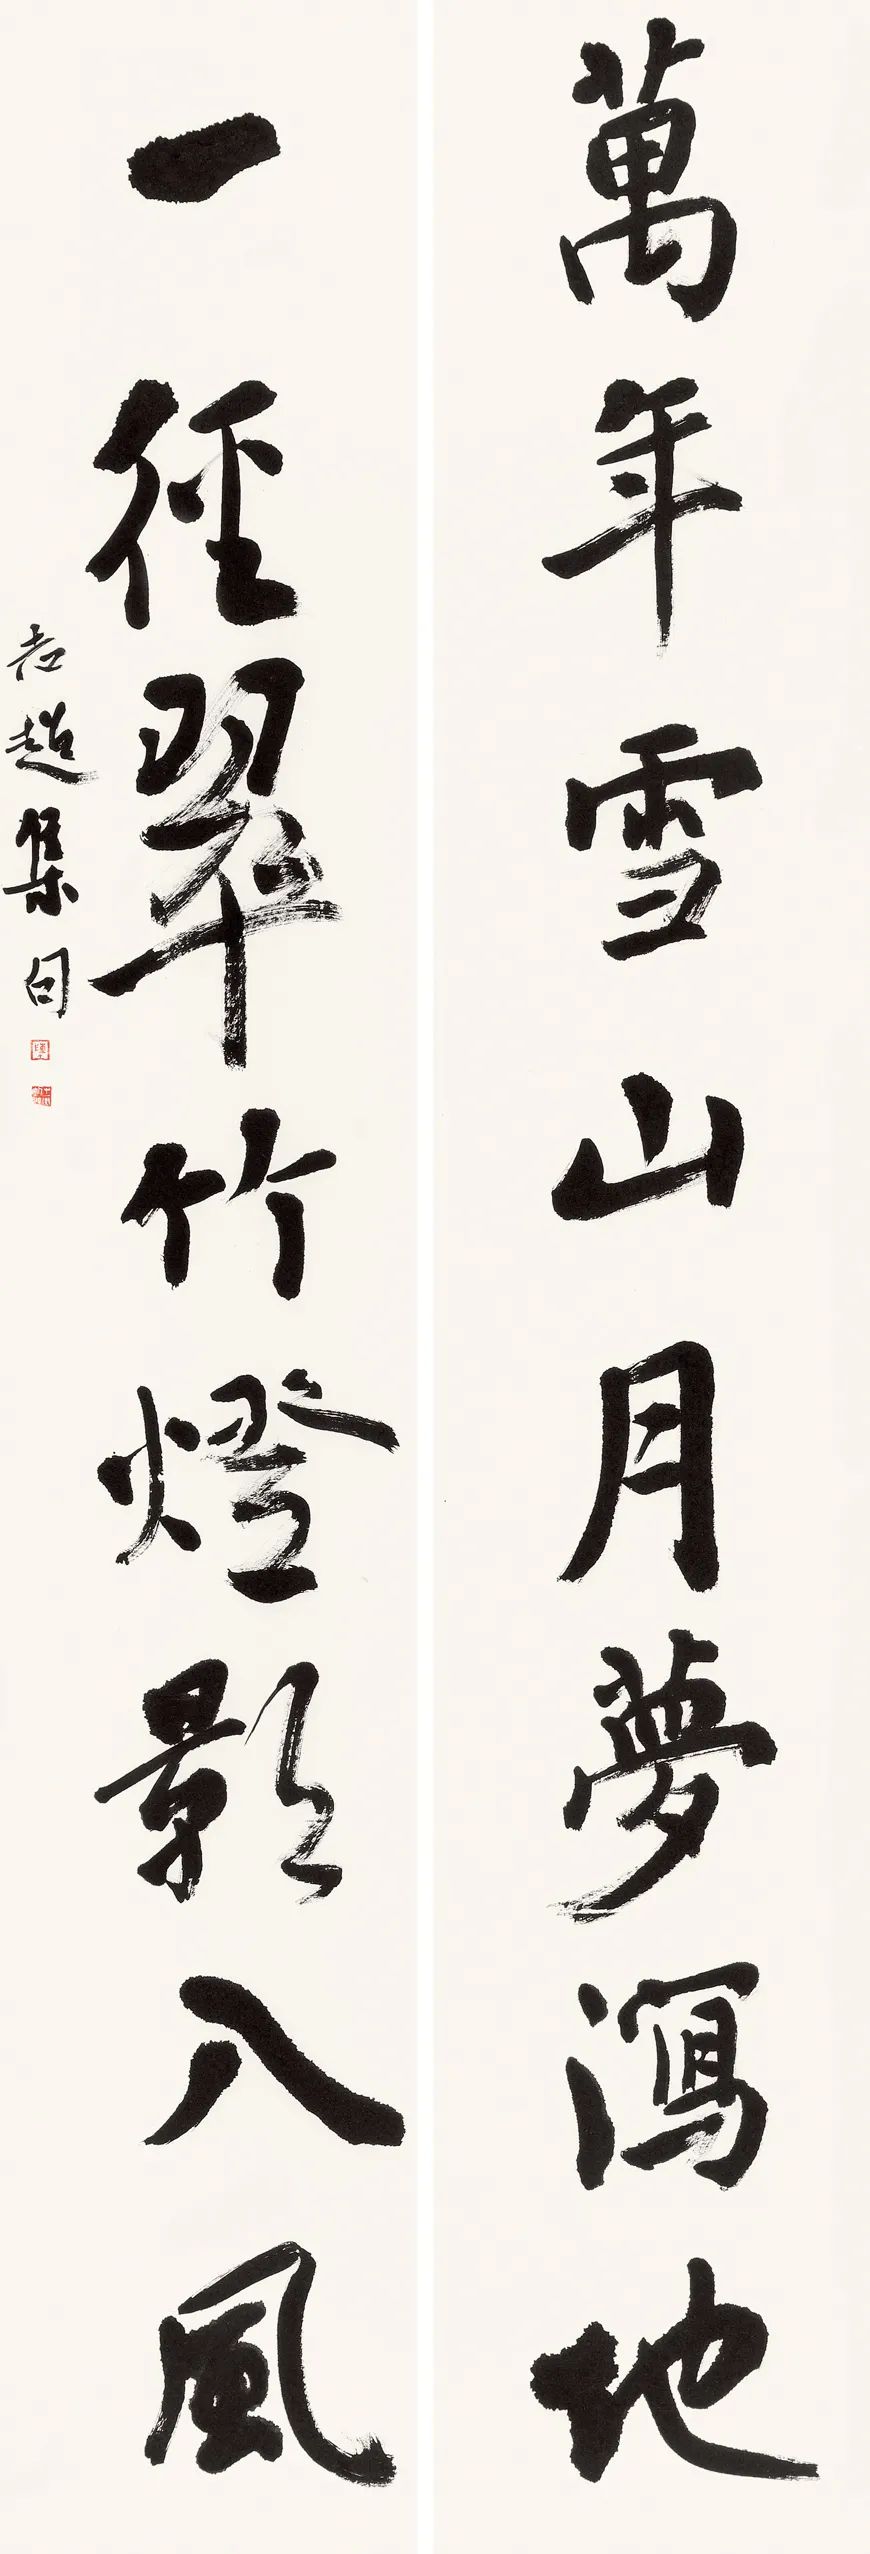 萬年雪山月夢瀉地
一徑翠竹燈影入風
老趙集句